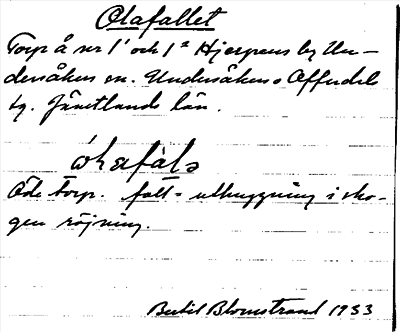 Olafallet
Torp å nr 1¹ och 1² Hjerpens by Un-
dersåkers sn. Undersåkers o Offerdals
tg. Jämtlands län.
ólafàlə
Öde torp. fall = uthuggning i sko-
gen röjning.
Bertil Blomstrand 1933